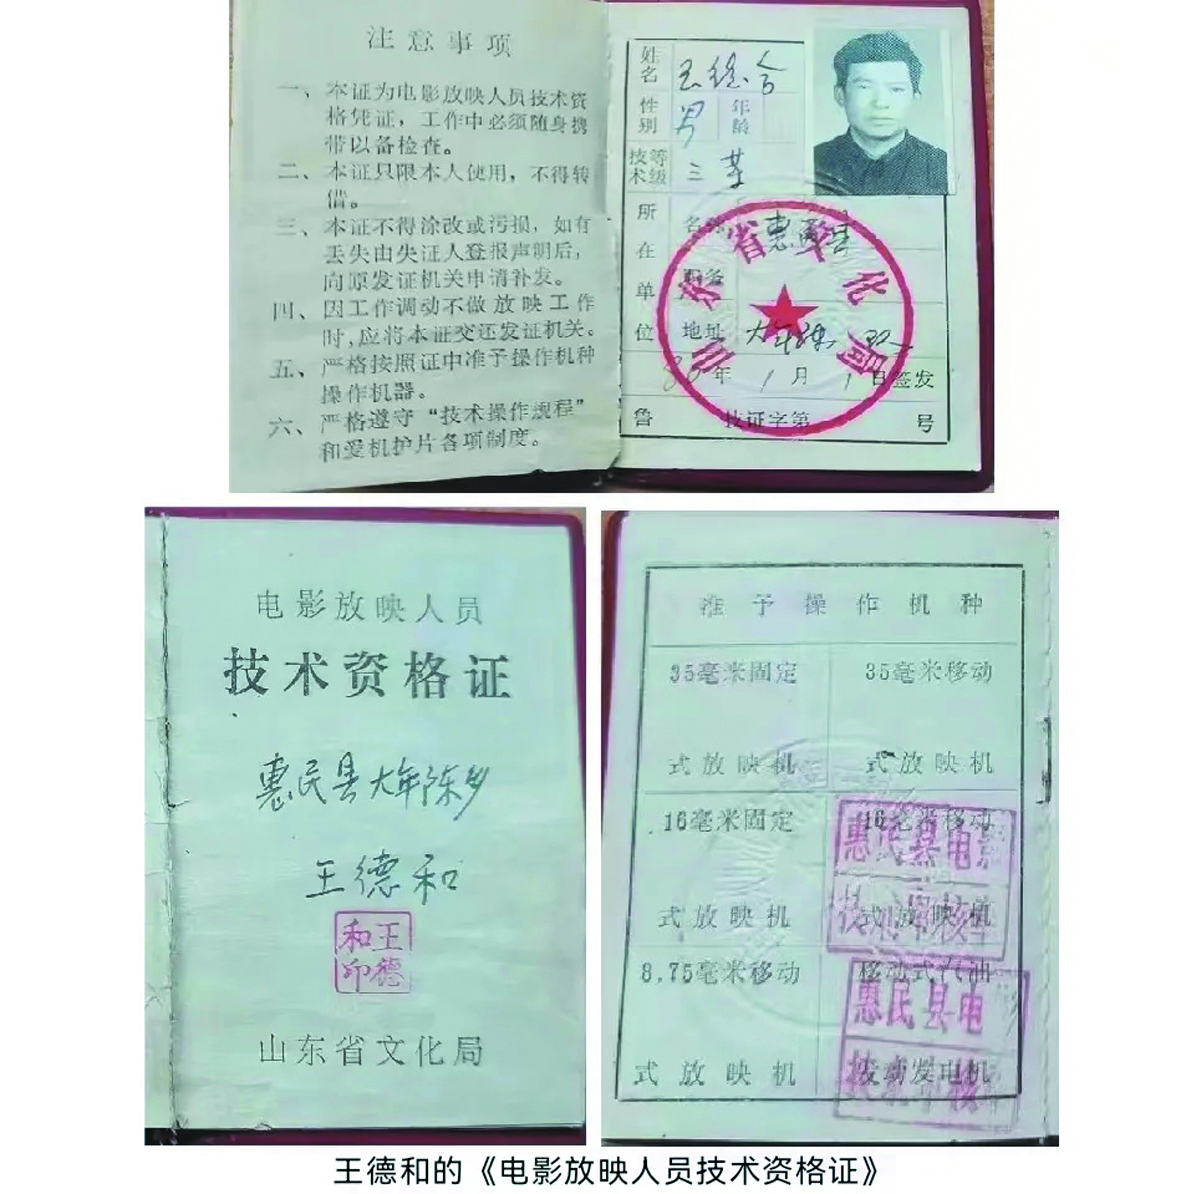 注意事项
一、本证为电影放映人员技术资
格凭证，工作中必须随身携
带以备检查。
二、本证只限本人使用，不得转
借。
三、本证不得涂改或污损，如有
丢失由失证人登报声明后，
向原发证机关申请补发。
四、因工作调动不做放映工作
时，应将本证交还发证机关。
五、严格按照证中准予操作机种
操作机器。
六、严格遵守“技术操作规程”
和爱机护片各项制度。
姓名 王德合
性别 男 年龄
技术等级 三等
所在单位
名称 惠民县
职务
地址 大年陈
年1月1日签发
鲁 技证字第 号
山东省文化局
电影放映人员
技术资格证
惠民县大年陈乡
王德和
王德和印
山东省文化局
准予操作机种
35毫米固定 35毫米移动
式放映机 式放映机
16毫米固定 16毫米移动
式放映机 式放映机
8.75毫米移动 移动式汽油
式放映机 发动发电机
惠民县电影
惠民县电
王德和的《电影放映人员技术资格证》